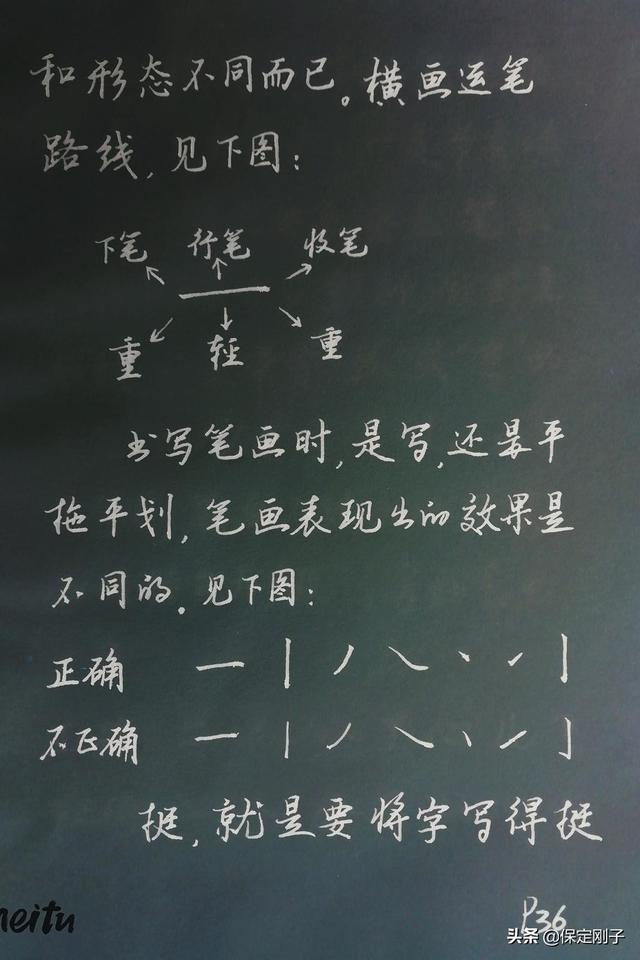 和形态不同而已。横画运笔
路线,见下图:
下笔 行笔 收笔
重 轻 重
书写笔画时,是写,还是平
拖平划,笔画表现出的效果是
不同的。见下图:
正确 一丨丿㇏丶㇀亅
不正确 一丨丿㇏丶㇀亅
挺,就是要将字写得挺
meitu
P36
头条 @保定刚子